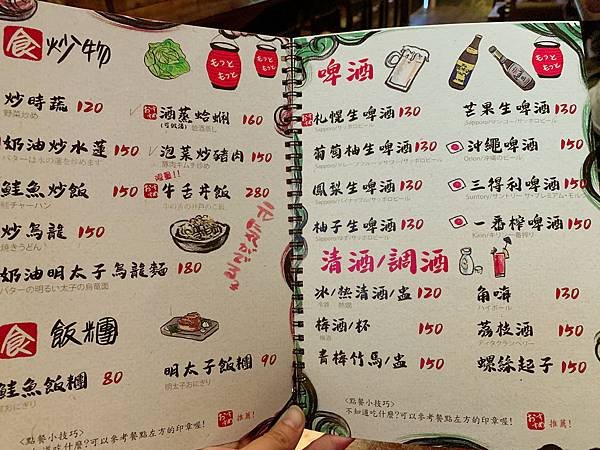 食 炒物
もっと
もっと
もっと
もっと
炒時蔬 120
野菜炒め
奶油炒水蓮 150
バターは水の蓮を炒めます
鮭魚炒飯 150
鮭チャーハン
炒烏龍 150
焼きうどん
奶油明太子烏龍麵 180
バターの明るい太子の烏竜面
酒蒸蛤蜊 160
(可做湯) 蛤酒蒸し
泡菜炒豬肉 150
豚肉キムチ炒め
限量!!
牛舌丼飯 280
食 飯糰
鮭魚飯糰 80
鮭おにぎり
明太子飯糰 90
明太子おにぎり
<點餐小技巧>
不知道吃什麼?可以參考餐點左方的印章喔!
おすすめ 推薦!
啤酒
もっと
もっと
おすすめ
札幌生啤酒 130
Sapporo/サッポロビール
葡萄柚生啤酒 130
鳳梨生啤酒 130
Sapporo/パイナップル/サッポロビール
柚子生啤酒 130
Sapporo/ゆず/サッポロビール
芒果生啤酒 130
Sapporo/マンゴー/サッポロビール
沖繩啤酒 150
Orion/沖縄のビール
三得利啤酒 150
Suntory/サントリー ザ・プレミアム・モルツ
一番搾啤酒 150
Kirin/キリン一番搾り
清酒/調酒
冰/熱清酒/盅 120
冷酒 熱燗
梅酒/杯 150
梅酒
青梅竹馬/盅 150
角嗨 130
ハイボール
荔枝酒 150
ディタクランベリー
螺絲起子 150
<點餐小技巧>
不知道吃什麼?可以參考餐點左方的印章喔!
おすすめ 推薦!